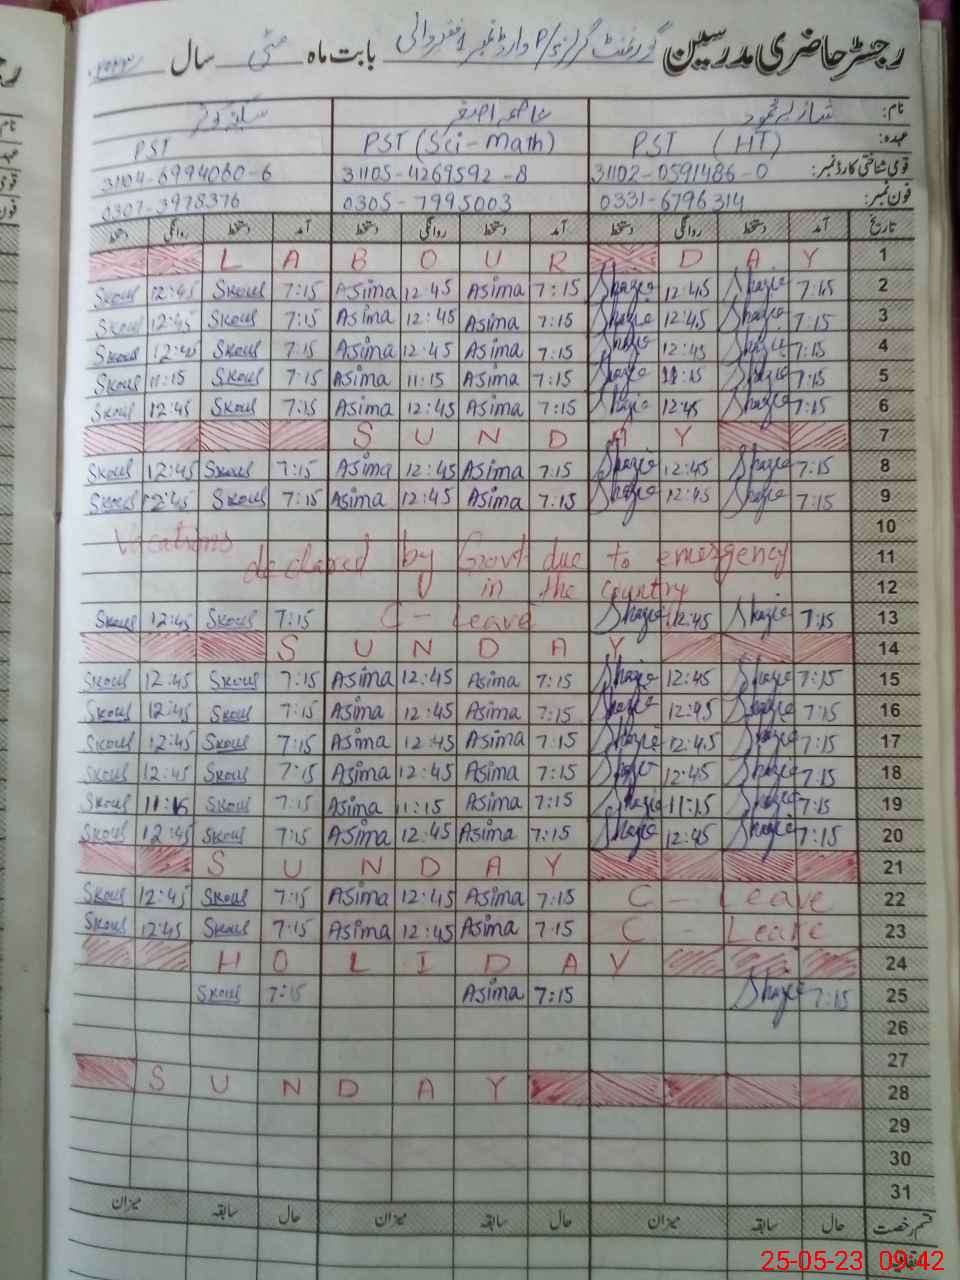 رجسٹر حاضری مدرسین گورنمنٹ گرلز P/S وارڈ نمبر 1 فقیروالی بابت ماہ مئی سال ۲۰۲۳
نام: شازیہ محمود عاصمہ اصغر سکینہ کوثر
عہدہ: PST (HT) PST (Sci-Math) PST
قومی شناختی کارڈ نمبر: 31102-0591486-0 31105-4269592-8 31104-6994060-6
فون نمبر: 0331-6796314 0305-7995003 0307-3978376
تاریخ آمد دستخط روانگی دستخط آمد دستخط روانگی دستخط آمد دستخط روانگی دستخط
LABOUR DAY 1
Skous 12:45 Skous 7:15 Asima 12:45 Asima 7:15 Shazie 12:45 Shazie 7:15 2
Skous 12:45 Skous 7:15 Asima 12:45 Asima 7:15 Shazie 12:45 Shazie 7:15 3
Skous 12:45 Skous 7:15 Asima 12:45 Asima 7:15 Shazie 12:45 Shazie 7:15 4
Skous 11:15 Skous 7:15 Asima 11:15 Asima 7:15 Shazie 11:15 Shazie 7:15 5
Skous 12:45 Skous 7:15 Asima 12:45 Asima 7:15 Shazie 12:45 Shazie 7:15 6
SUNDAY 7
Skous 12:45 Skous 7:15 Asima 12:45 Asima 7:15 Shazie 12:45 Shazie 7:15 8
Skous 12:45 Skous 7:15 Asima 12:45 Asima 7:15 Shazie 12:45 Shazie 7:15 9
Vacations 10
declared by Govt due to emergency 11
in the country 12
Skous 12:45 Skous 7:15 C - Leave Shazie 12:45 Shazie 7:15 13
SUNDAY 14
Skous 12:45 Skous 7:15 Asima 12:45 Asima 7:15 Shazie 12:45 Shazie 7:15 15
Skous 12:45 Skous 7:15 Asima 12:45 Asima 7:15 Shazie 12:45 Shazie 7:15 16
Skous 12:45 Skous 7:15 Asima 12:45 Asima 7:15 Shazie 12:45 Shazie 7:15 17
Skous 12:45 Skous 7:15 Asima 12:45 Asima 7:15 Shazie 12:45 Shazie 7:15 18
Skous 11:15 Skous 7:15 Asima 11:15 Asima 7:15 Shazie 11:15 Shazie 7:15 19
Skous 12:45 Skous 7:15 Asima 12:45 Asima 7:15 Shazie 12:45 Shazie 7:15 20
SUNDAY 21
Skous 12:45 Skous 7:15 Asima 12:45 Asima 7:15 C - Leave 22
Skous 12:45 Skous 7:15 Asima 12:45 Asima 7:15 C - Leave 23
HOLIDAY 24
Skous 7:15 Asima 7:15 Shazie 7:15 25
26
27
SUNDAY 28
29
30
31
قسم رخصت حال سابقہ میزان حال سابقہ میزان حال سابقہ میزان
25-05-23 09:42